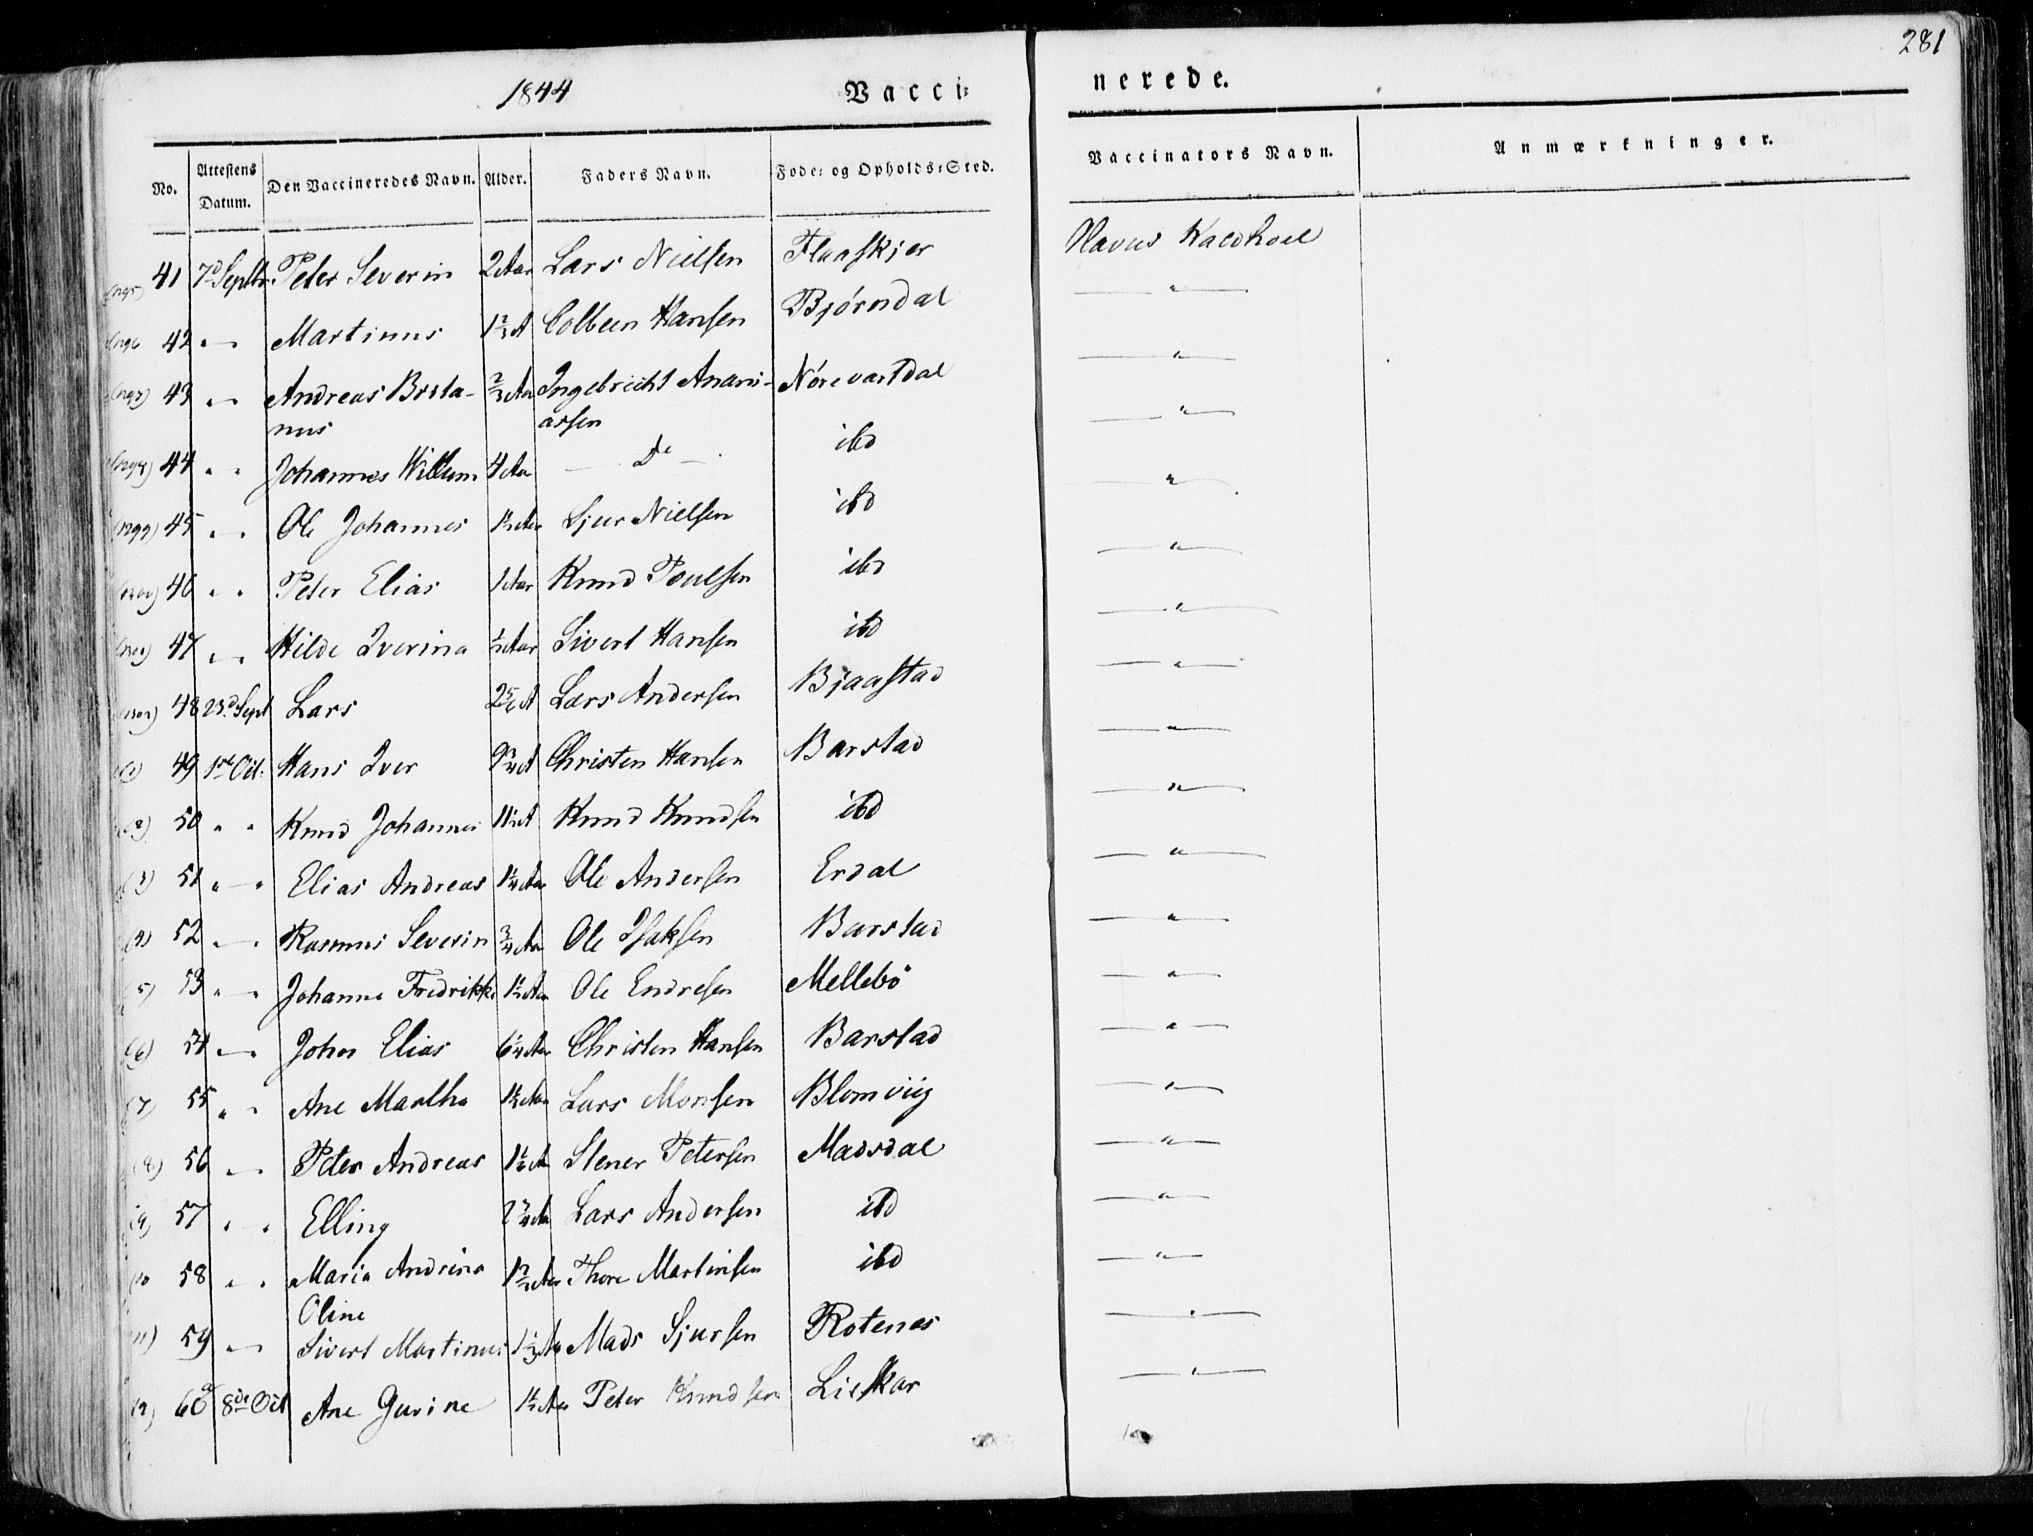 281
1844 Vacci= nerede.
No. Attestens Datum. Den Vaccineredes Navn. Alder. Faders Navn. Føde= og Opholds=Sted. Vaccinators Navn. Anmærkninger.
41 7d Septbr Peter Severin 2 Aar Lars Nielsen Flaaskjer Navus Kaldhoel
42 " — " Martinus 1 2/3 A Colbeen Hansen Bjørndal — " —
43 " — " Andreas Brita- 2/3 Aar Ingebricht Anani- Nørevartdal — " —
nus assen
44 " " Johannes Willum 4 Aar — De — ibd — " —
45 " — " Ole Johannes 1 1/2 Aar Sjur Nielsen ibd — " —
46 " " Peter Elias 1 Aar Knud Poulsen ibd — " —
47 " — " Hilde Iverina 1/2 Aar Sivert Hansen ibd — " —
48 23d Sept Lars 2 5/6 A Lars Andersen Bjaastad — " —
49 1ste Oct: Hans Iver 9 3/4 A Christen Hansen Barstad — " —
50 " " Knud Johannes 11 1/2 A Knud Knudsen ibd — " —
51 " — " Elias Andreas 1 1/4 Aar Ole Andersen Erdal — " —
52 " — " Rasmus Severin 3/4 Aar Ole Isaksen Barstad — " —
53 " — " Johanne Fredrikke 1 1/2 Aar Ole Endresen Mellebø — " —
54 " — " John Elias 6 1/4 Aar Christen Hansen Barstad — " —
55 " " Ane Martha 1 1/2 Aar Lars Monsen Blomviig — " —
56 " — " Peter Andreas 1 1/2 Aar Stener Petersen Madsdal — " —
57 " — " Elling 2 3/4 Aar Lars Andersen ibd — " —
58 " " Maria Andrina Thore Martinsen ibd — " —
Oline
59 " — " Sivert Martinus 1 1/3 Aar Mads Sjursen Rotenes — " —
60 8de Oct Ane Gurine 1 1/2 Aar Peter Knudsen Lieskar — " —